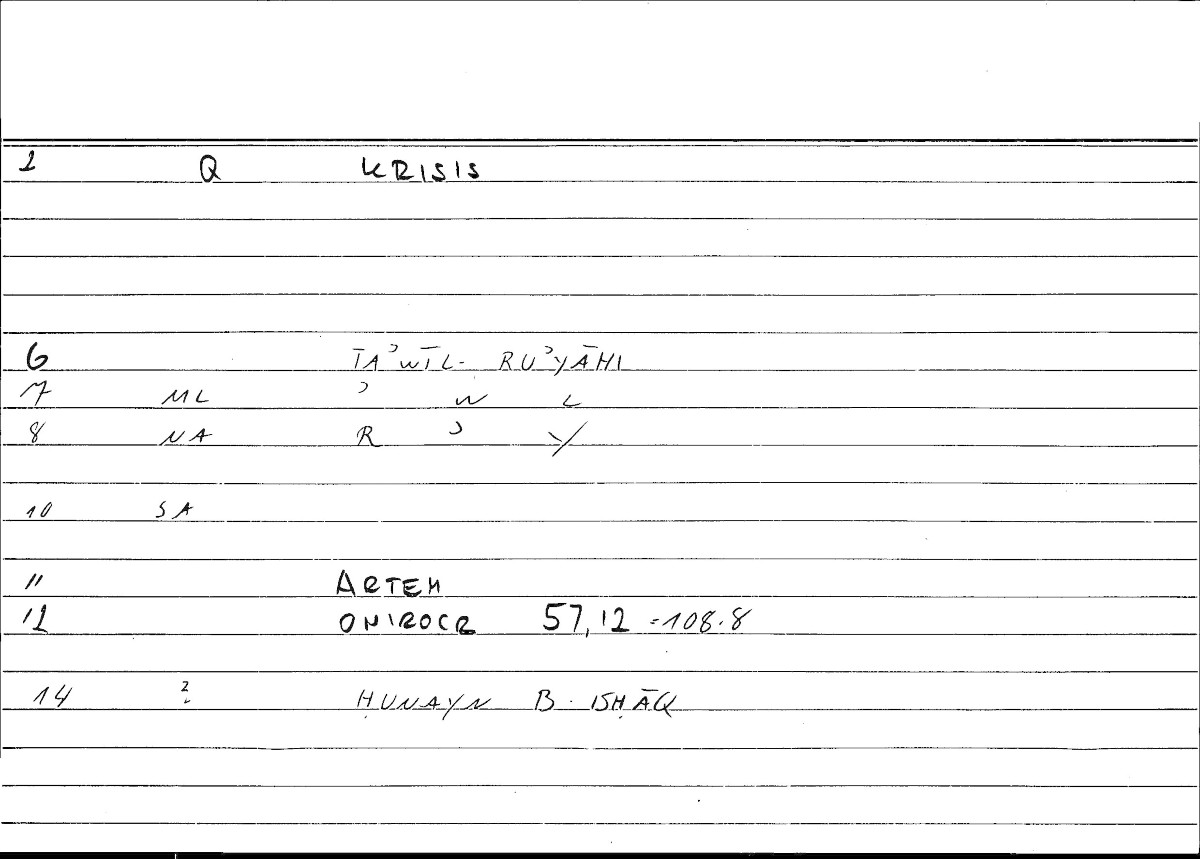 1 Q KRISIS
6 TAʾWĪL- RUʾYĀHI
7 ML ʾ W L
8 NA R ʾ Y
10 SA
11 ARTEM
12 ONIROCR 57,12 =108.8
14 ? ḤUNAYN B. ISḤĀQ